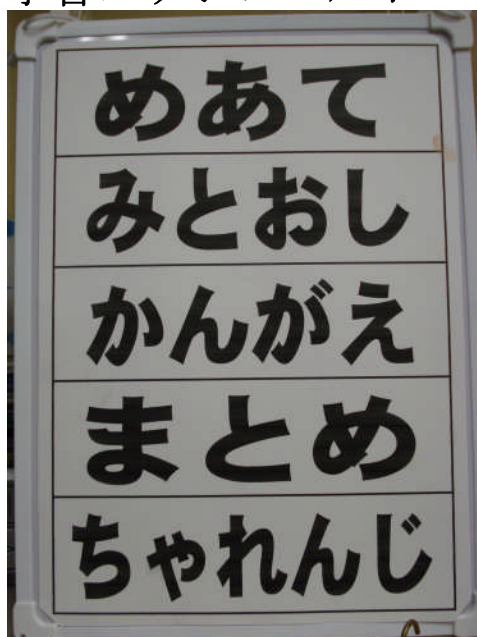 めあて
みとおし
かんがえ
まとめ
ちゃれんじ